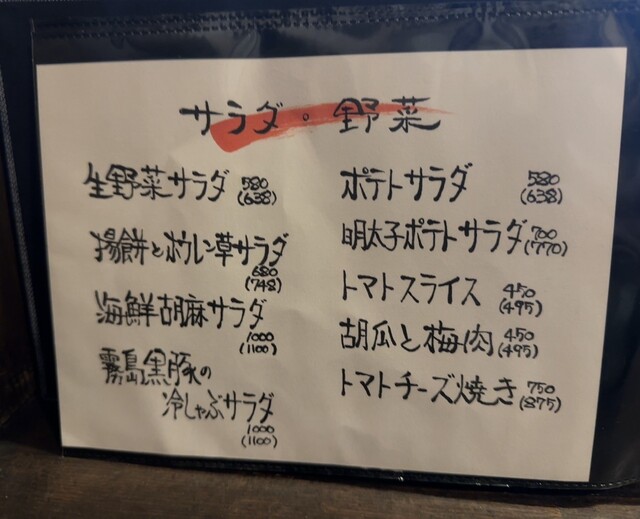 サラダ・野菜
生野菜サラダ 580
(638)
揚餅とホウレン草サラダ
680
(748)
海鮮胡麻サラダ
1000
(1100)
霧島黒豚の
冷しゃぶサラダ
1000
(1100)
ポテトサラダ 580
(638)
明太子ポテトサラダ 700
(770)
トマトスライス 450
(495)
胡瓜と梅肉 450
(495)
トマトチーズ焼き 750
(875)